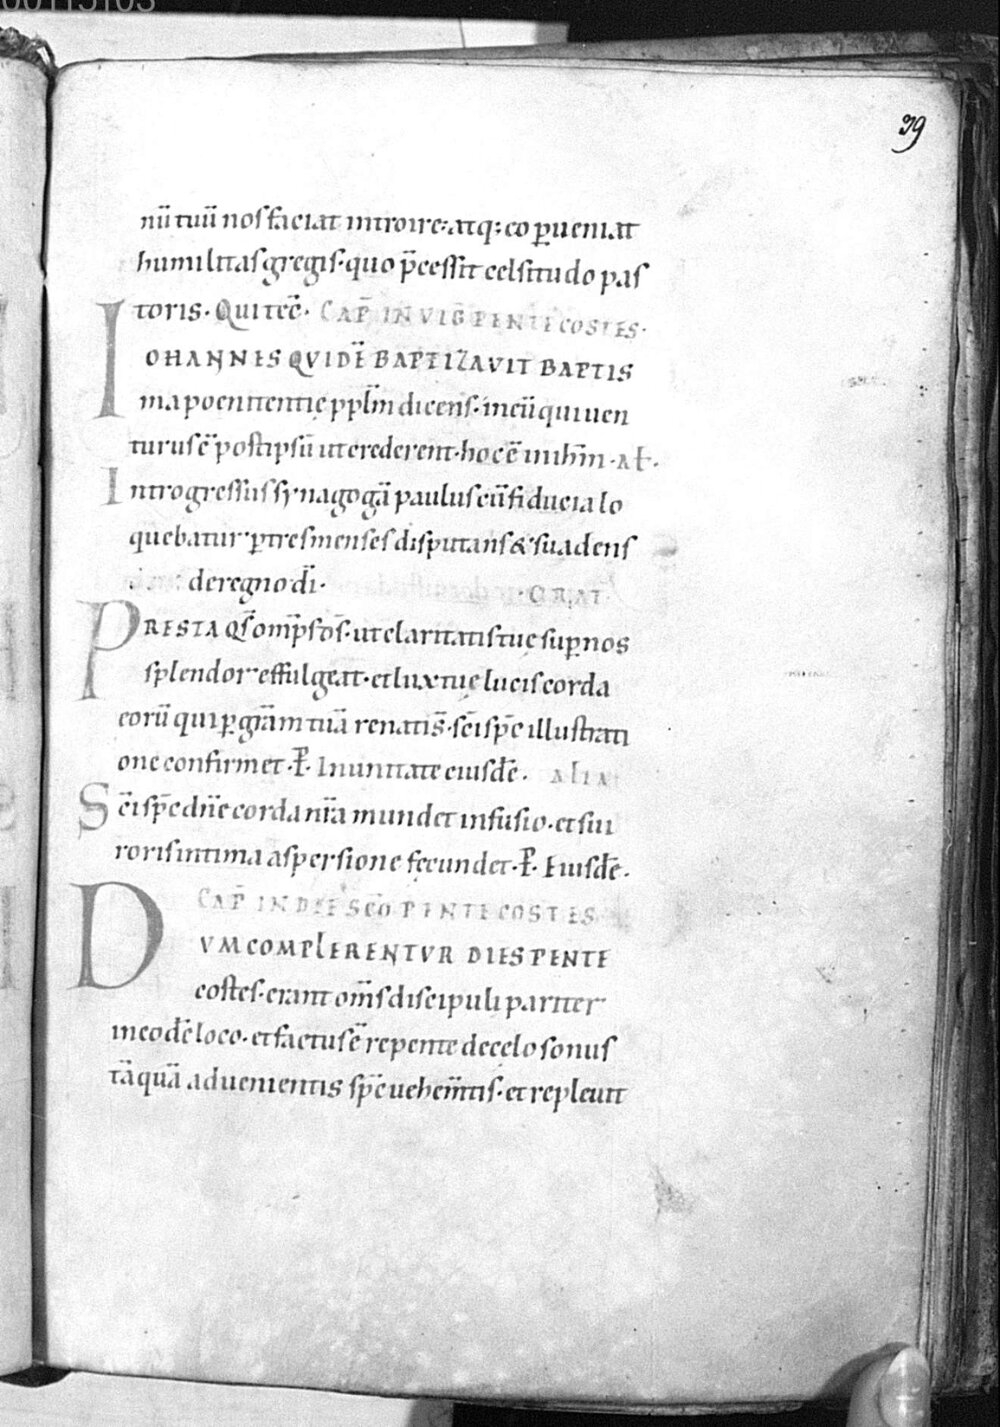 39
nū tuū nos faciat introire; atq; eo ꝑueniat
humilitas gregis· quo p̄cessit celsitudo pas
toris· Qui tec̄· CAP̄ IN VIG̅ PENTECOSTES·
IOHANNES QVIDĒ BAPTIZAVIT BAPTIS
ma poenitentię pplm̄ dicens· in eū qui uen
turus ē post ipsū ut crederent· hoc ē in ihm̄· Ał·
Introgressus synagogā paulus cū fiducia lo
quebatur· ꝑ tres menses disputans & suadens
de regno dī· ORAT
PRESTA QS̄ omp̄s ds̄· ut claritatis tuę suꝑ nos
splendor effulgeat· et lux tuę lucis corda
eorū qui ꝑ gr̄am tuā renati s̄· sc̄i sp̄c illustrati
one confirmet· P̄· In unitate eiusdē· alia
Sc̄i sp̄c dn̄e corda nr̄a mundet infusio· et sui
roris intima aspersione fecundet· P̄· Eiusdē·
CAP̄ IN DIE SC̄O PENTECOSTES
DVM COMPLERENTVR DIES PENTE
costes· erant om̄s discipuli pariter
in eodē loco· et factus ē repente de celo sonus
tāquā aduenientis sp̄c uehem̄tis· et repleuit